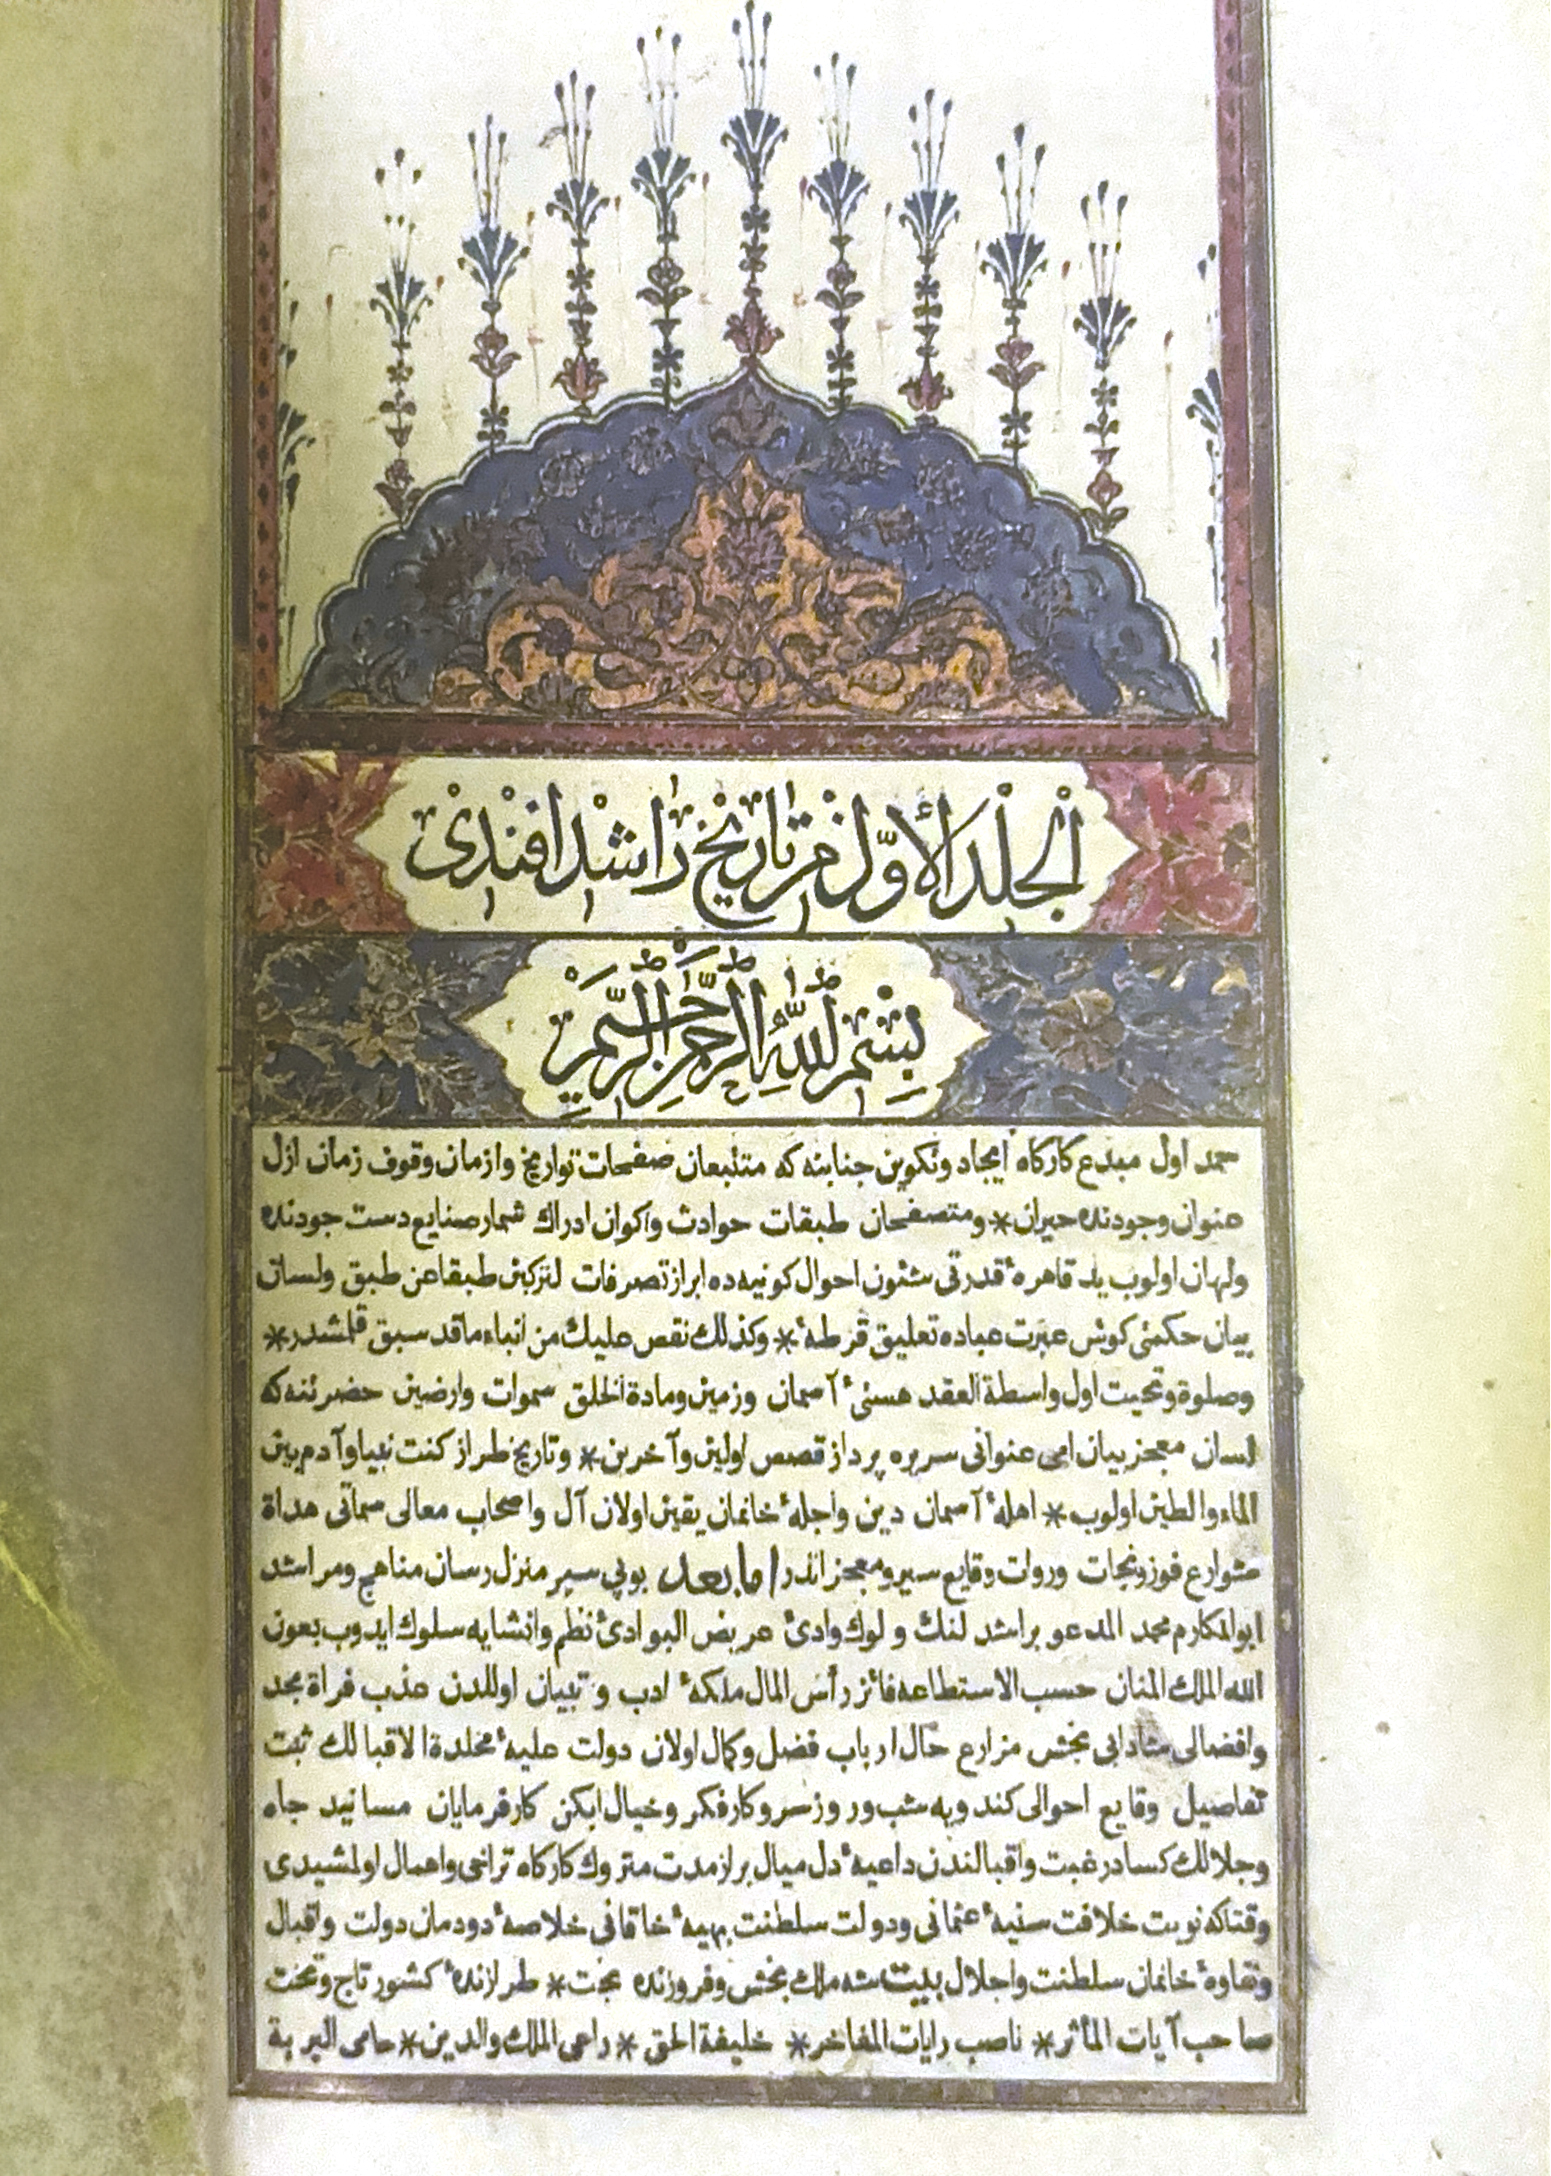 الجلد الأول من تاريخ راشد افندی
بسم الله الرحمن الرحيم
حمد اول مبدع کارکاه ایجاد وتکوین جنابنه که متتبعان صفحات تواریخ وازمان وقوف زمان ازل
عنوان وجودنده حیران * ومتصفحان طبقات حوادث واکوان ادراك شمار صنایع دست جودنده
ولهان اولوب ید قاهرۀ قدرتی شئون احوال کونیه ده ابراز تصرفات لترکبن طبقا عن طبق ولسان
بیان حکمتی کوش عبرت عباده تعلیق قرطۀ * وکذلك نقص علیك من انباء ماقد سبق قلمشدر *
وصلوة وتحیت اول واسطة العقد هستئ آسمان وزمین ومادة الخلق سموات وارضین حضرتنه که
لسان معجز بیان امی عنوانی سریره پرداز قصص اولین وآخرین * وتاریخ طراز کنت نبیا وآدم بین
الماء والطین اولوب * اهلۀ آسمان دین واجلۀ خانمان یقین اولان آل واصحاب معالی سماتی هداة
شوارع فوز ونجات وروات وقایع سیر ومعجزاتدر اما بعد بو بی سیر منزل رسان مناهج ومراشد
ابوالمکارم محمد المدعو براشد لنك ولوك وادئ عریض البوادئ نظم وانشایه سلوك ایدوب بعون
الله الملك المنان حسب الاستطاعه فائز رأس المال ملکۀ ادب وتبیان اوللدن عذب فراة مجد
وافضالی شادابی بخش مزارع حال ارباب فضل وکمال اولان دولت علیۀ مخلدة الاقبالك ثبت
تفاصیل وقایع احوالی کند ویه شب وروز سر وکار فکر وخیال ایکن کارفرمایان مسانید جاه
وجلالك کساد رغبت واقبالندن داعیۀ دل میال برازمدت متروك کارکاه تراخی واهمال اولمشیدی
وقتاکه نوبت خلافت سنیۀ عثمانی ودولت سلطنت بهیۀ خاقانی خلاصۀ دودمان دولت واقبال
ونقاوۀ خانمان سلطنت واجلال بیت شه ملك بخش وفروزنده بخت * طرازندۀ کشور تاج وتخت
صاحب آیات المأثر * ناصب رایات المفاخر * خلیفة الحق * راعی الملك والدین * حامی البریة